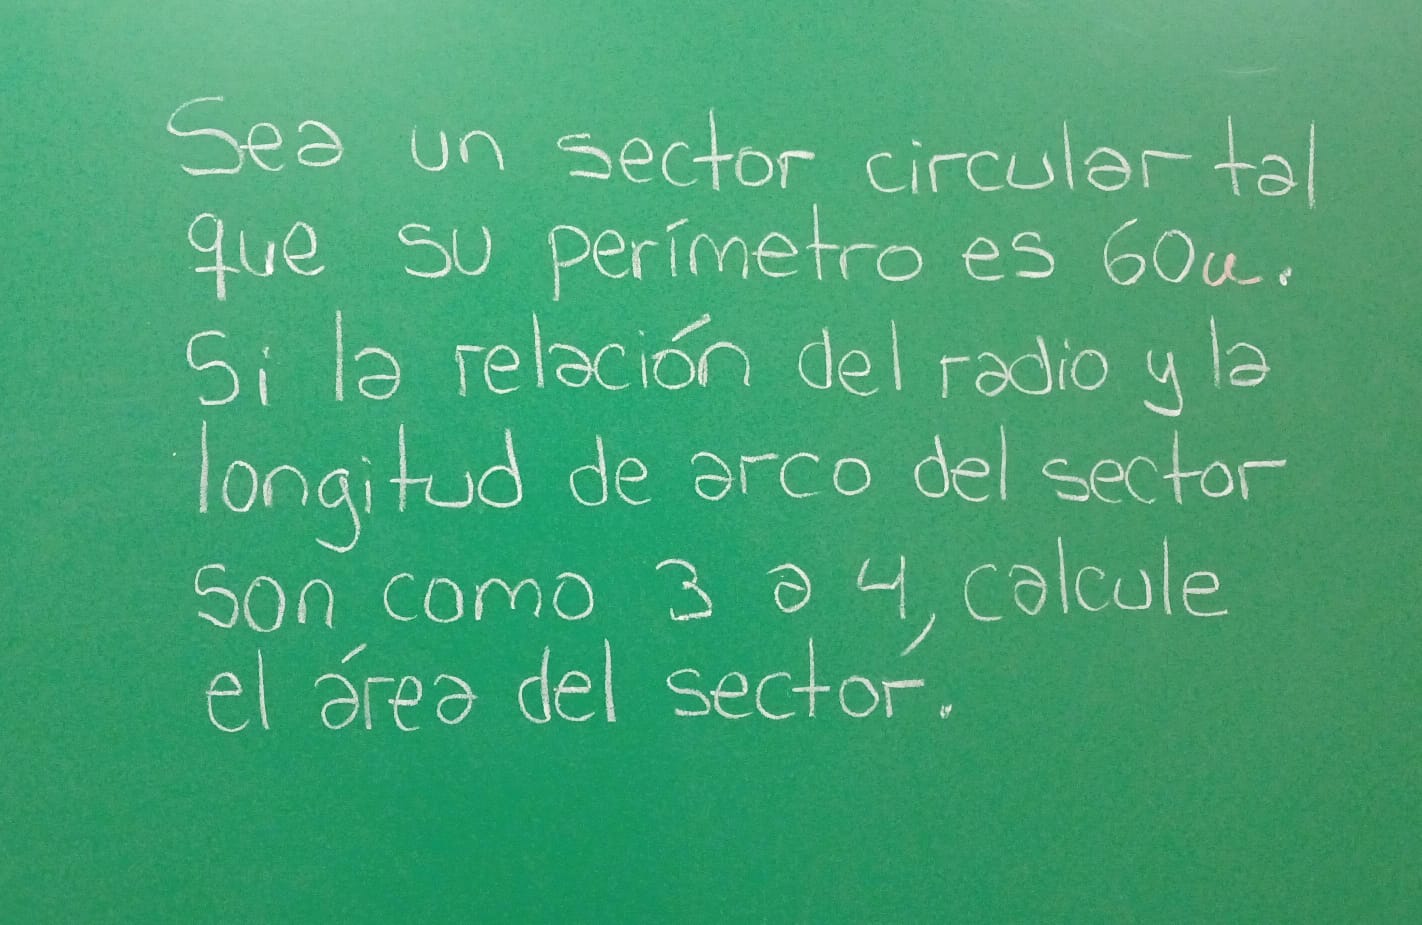 Sea un sector circular tal
que su perímetro es 60u.
Si la relación del radio y la
longitud de arco del sector
son como 3 a 4, calcule
el área del sector.